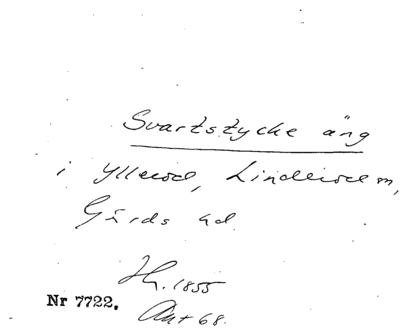 Svartstycke äng
i Ylleröd, Linderöd sn,
Gärds hd.
H. 1855
Nr 7722.
Akt 68.